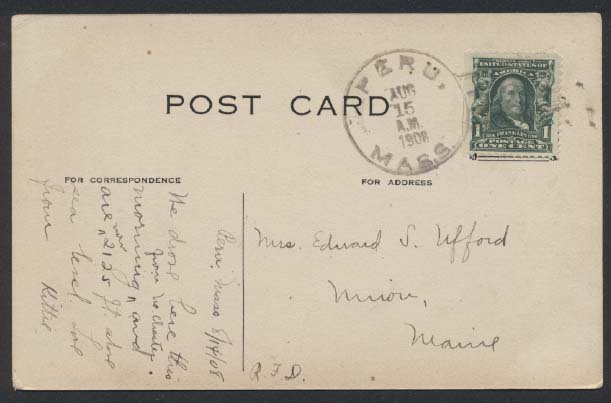 POST CARD
PERU,
AUG
15
A.M.
1908
MASS.
UNITED STATES OF
AMERICA
1 1
FRANKLIN
POSTAGE
ONE CENT
FOR CORRESPONDENCE
FOR ADDRESS
Peru, Mass 8/14/08
We drove here this
from No.
morning and
now
are 2125 ft. above
sea level. Love
from Kittie.
Mrs. Edward S. Ufford
Union,
Maine
R. F. D.